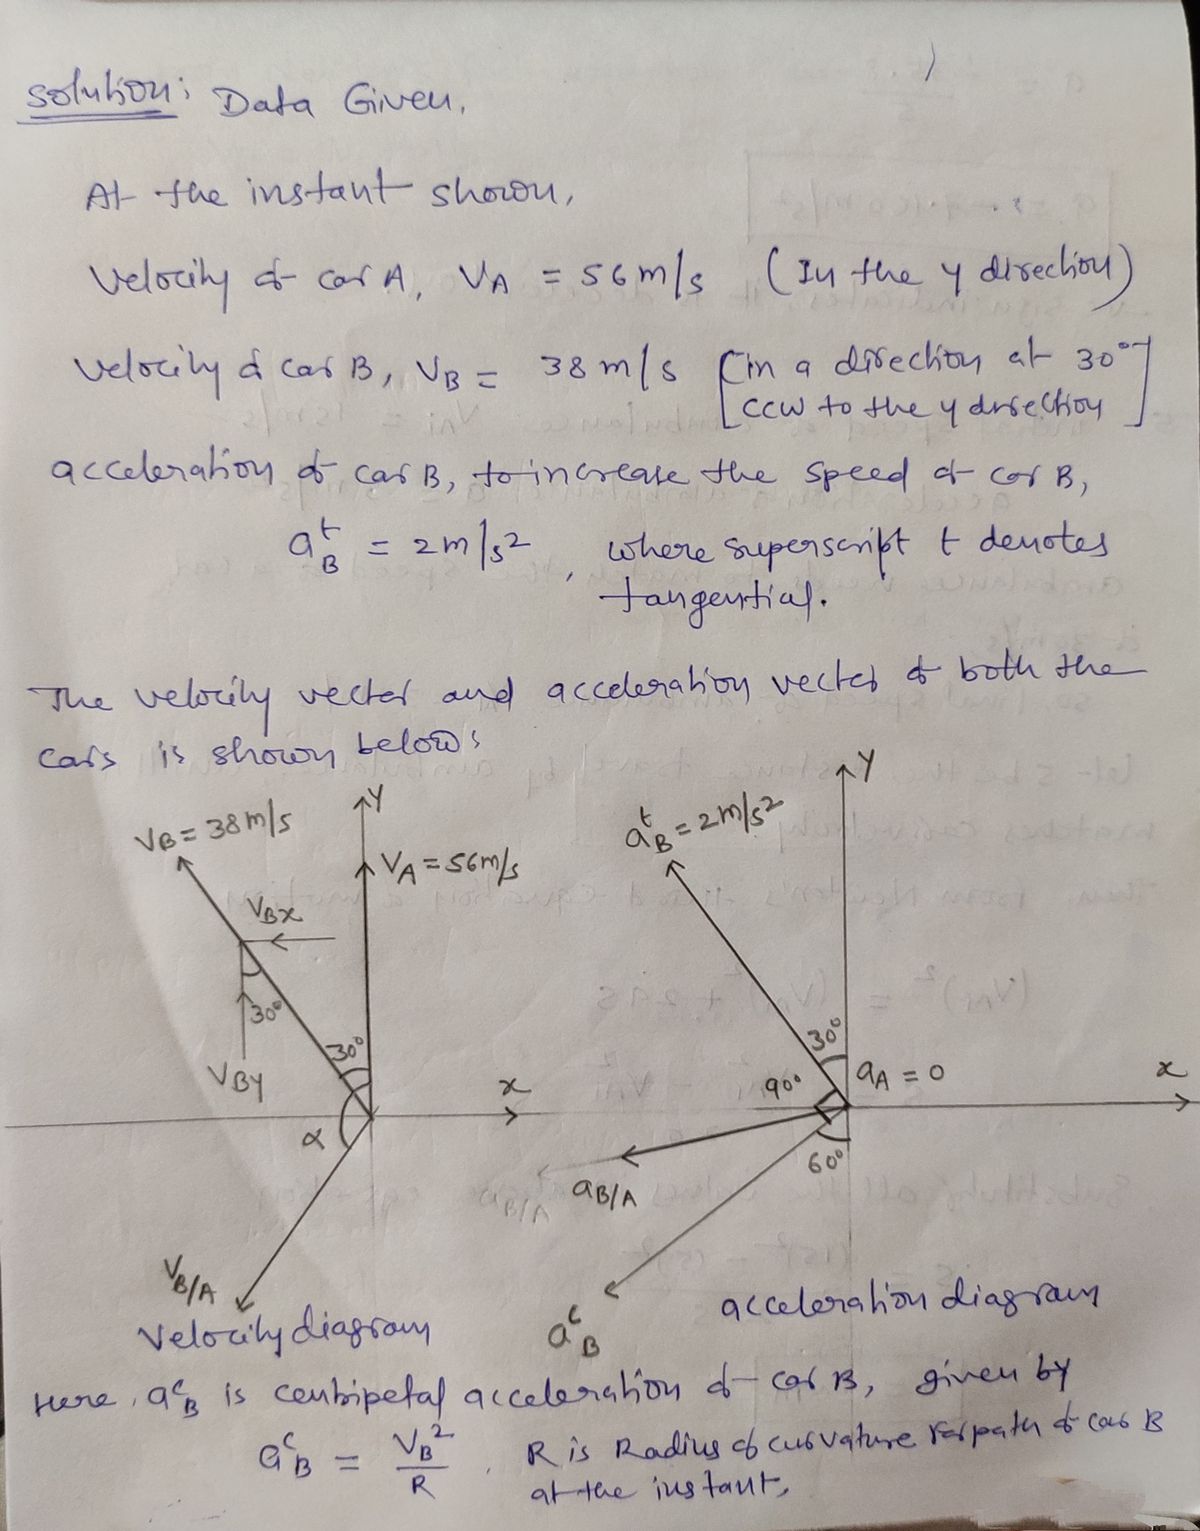 Solution: Data Given.
At the instant shown,
Velocity of car A, VA = 56 m/s (In the y direction)
Velocity of car B, VB = 38 m/s [in a direction at 30°
CCW to the y direction]
acceleration of car B, to increase the speed of car B,
a^t_B = 2 m/s², where superscript t denotes
tangential.
The velocity vector and acceleration vector of both the
cars is shown below:
VB = 38 m/s
Y
VA = 56 m/s
VBx
30°
30°
VBY
x
α
VB/A
Velocity diagram
Y
a^t_B = 2 m/s²
30°
90°
aA = 0
x
60°
aB/A
a^c_B
acceleration diagram
Here, a^c_B is centripetal acceleration of car B, given by
a^c_B = VB²/R, R is Radius of curvature for path of car B
at the instant,